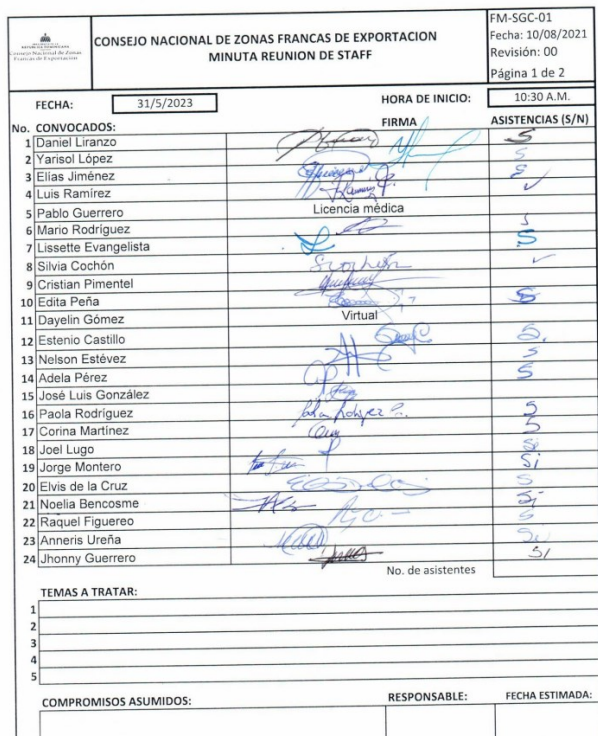 REPÚBLICA DOMINICANA
Consejo Nacional de Zonas
Francas de Exportación
CONSEJO NACIONAL DE ZONAS FRANCAS DE EXPORTACION
MINUTA REUNION DE STAFF
FM-SGC-01
Fecha: 10/08/2021
Revisión: 00
Página 1 de 2
FECHA: 31/5/2023 HORA DE INICIO: 10:30 A.M.
No. CONVOCADOS: FIRMA ASISTENCIAS (S/N)
1 Daniel Liranzo S
2 Yarisol López S
3 Elías Jiménez S
4 Luis Ramírez ✓
5 Pablo Guerrero Licencia médica
6 Mario Rodríguez S
7 Lissette Evangelista S
8 Silvia Cochón ✓
9 Cristian Pimentel
10 Edita Peña S
11 Dayelin Gómez Virtual
12 Estenio Castillo S.
13 Nelson Estévez S
14 Adela Pérez S
15 José Luis González
16 Paola Rodríguez S
17 Corina Martínez S
18 Joel Lugo Si
19 Jorge Montero Si
20 Elvis de la Cruz S
21 Noelia Bencosme Si
22 Raquel Figuereo S
23 Anneris Ureña Si
24 Jhonny Guerrero Si
No. de asistentes
TEMAS A TRATAR:
1
2
3
4
5
COMPROMISOS ASUMIDOS: RESPONSABLE: FECHA ESTIMADA: